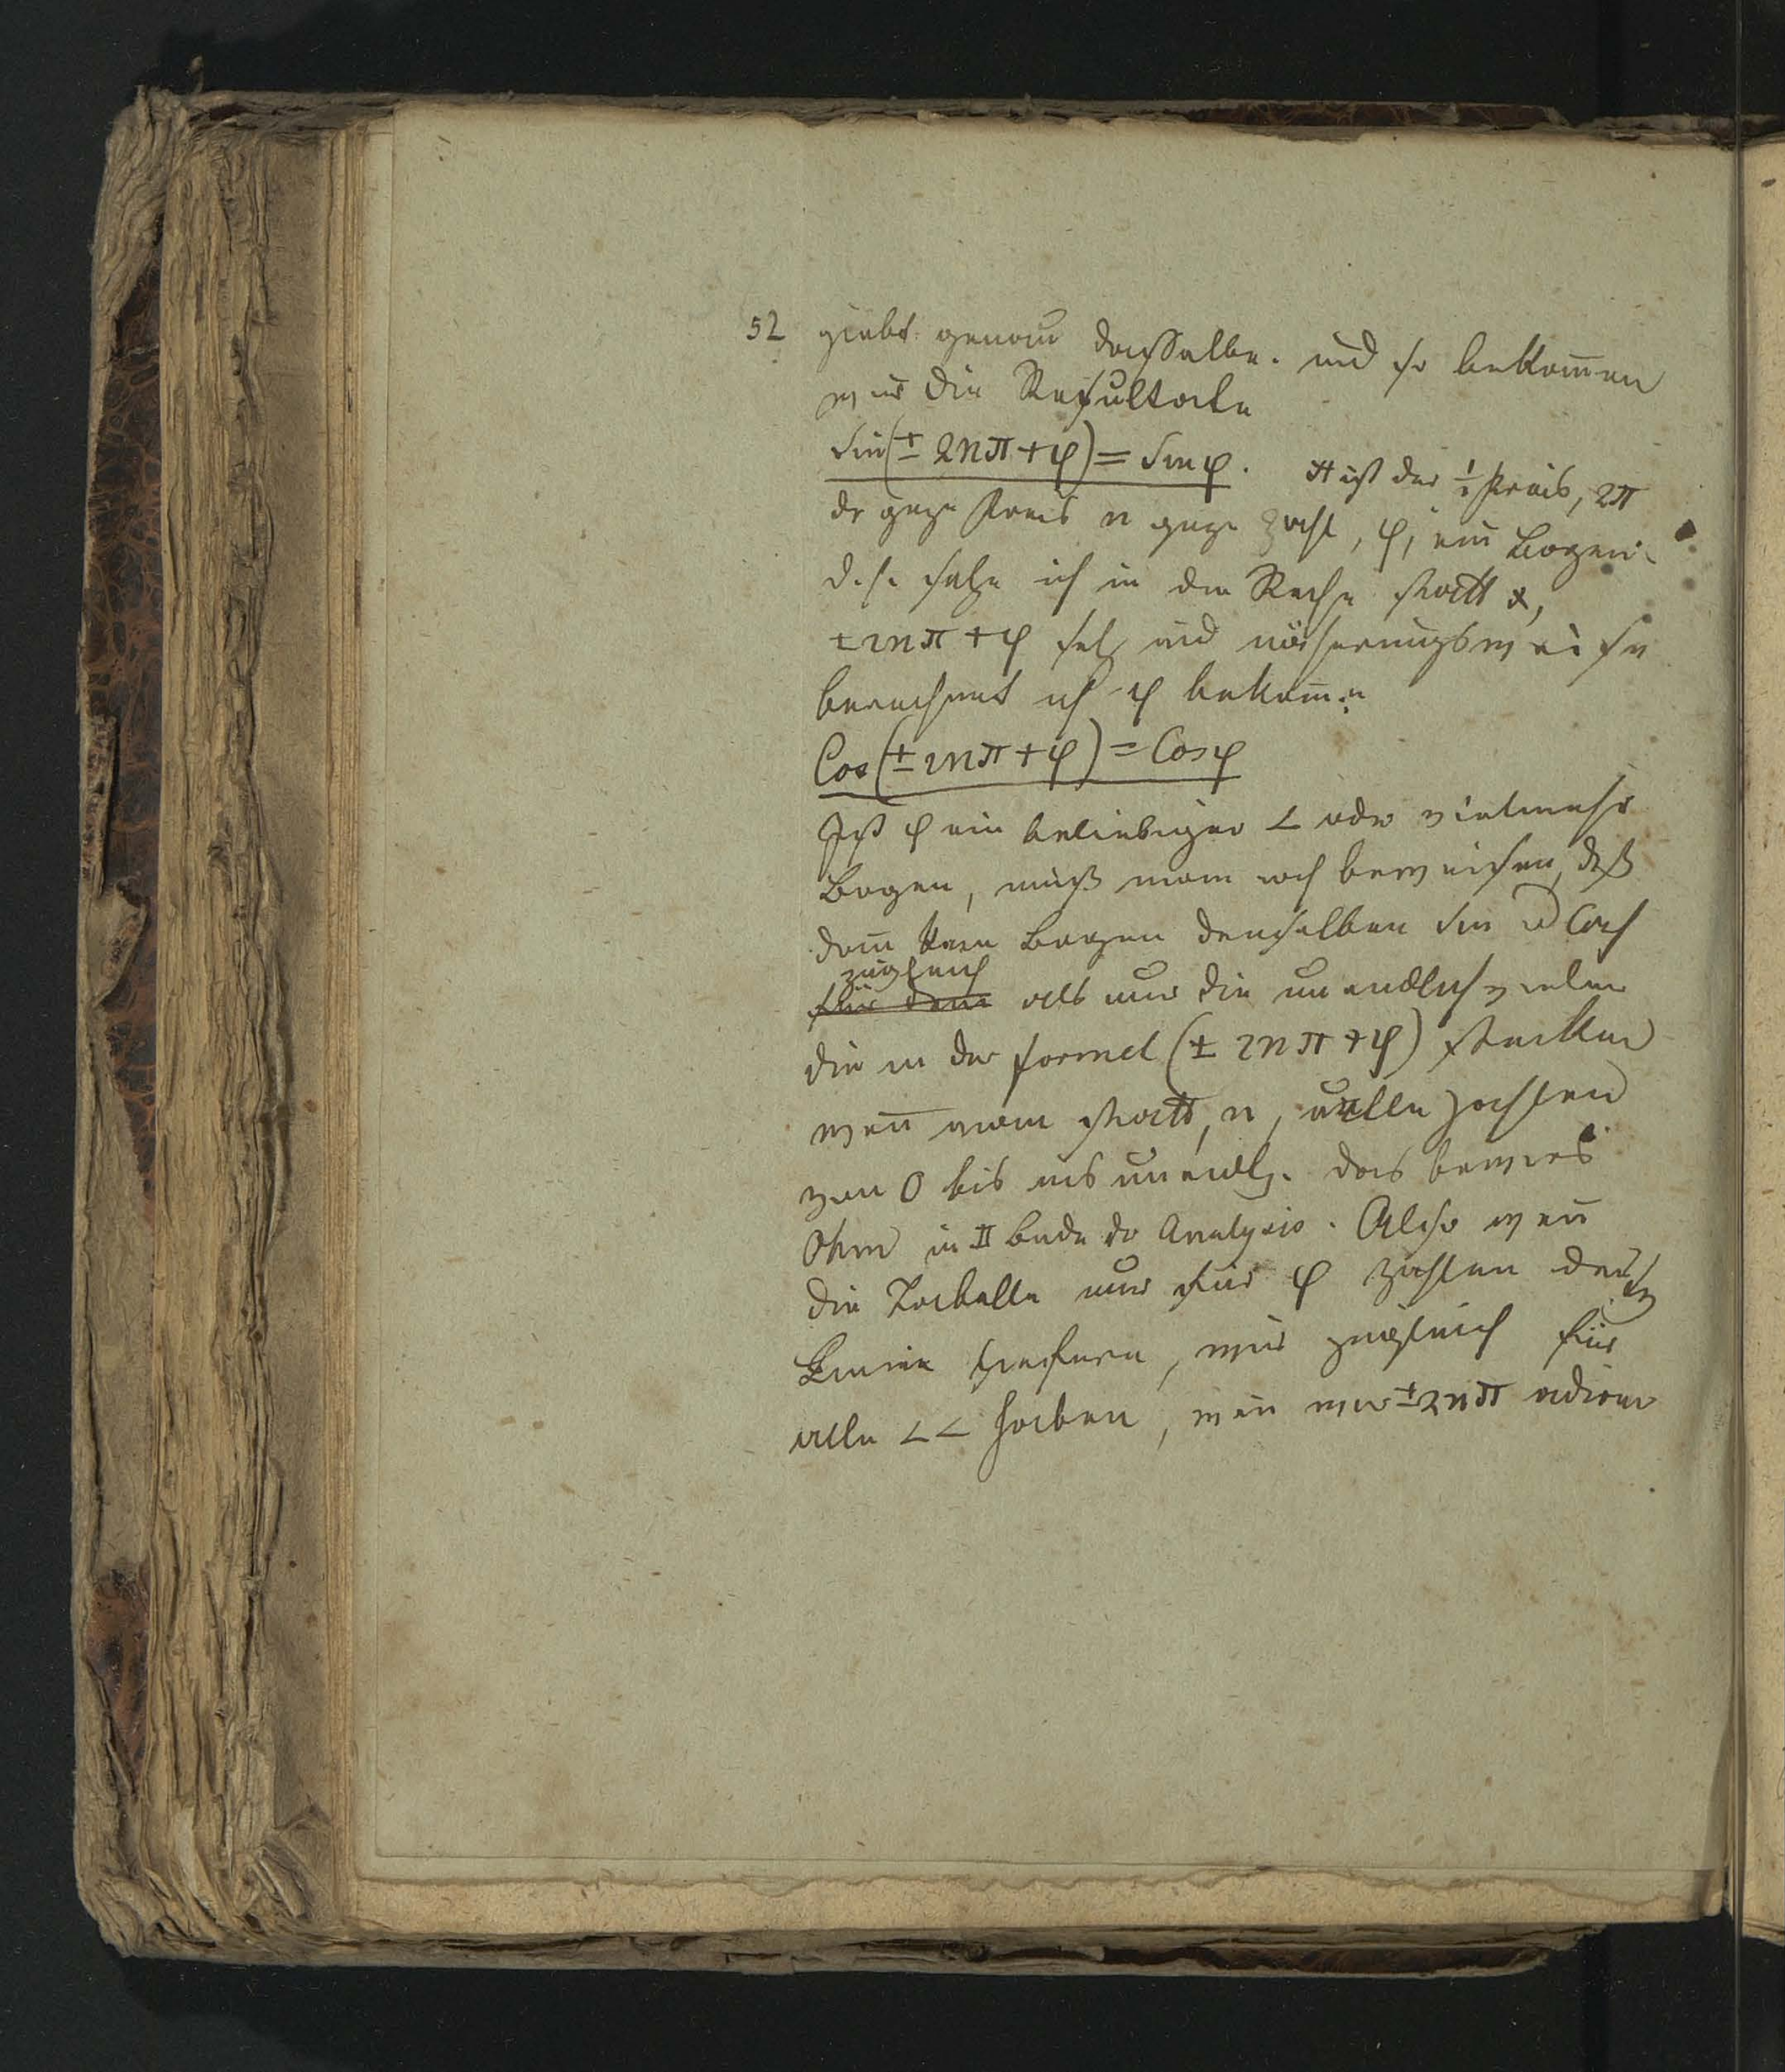 52 giebt genau dasselbe. und so bekom̅en
wir die Resultate
Sin(± 2nπ + φ) = Sin φ. π ist der ½ Kreis, 2π
dr gnze Kreis n gnze Zahl, φ, ein Bogen.
d. h. setze ich in der Reihe statt x,
±2nπ + φ und näherungsweise
berechnet ich φ bekom̅e
Cos(± 2nπ + φ) = Cos φ
Ist φ ein beliebiger ∠ oder vielmehr
Bogen, muß man noch beweisen, dß
dan̅ kein Bogen denselben Sin u Cos
zugleich
für dem als nur die unendlich vielen
die in der Formel (± 2nπ + φ) stecken
wen̅ man statt, n, alle Zahlen
von 0 bis ins unendl. das bewies
Ohm in II Bnde dr Analysis. Also wen̅
die Tabelle nur für φ Zahlen
wir zugleich für
alle ∠∠ haben, wen̅ wir ±2nπ